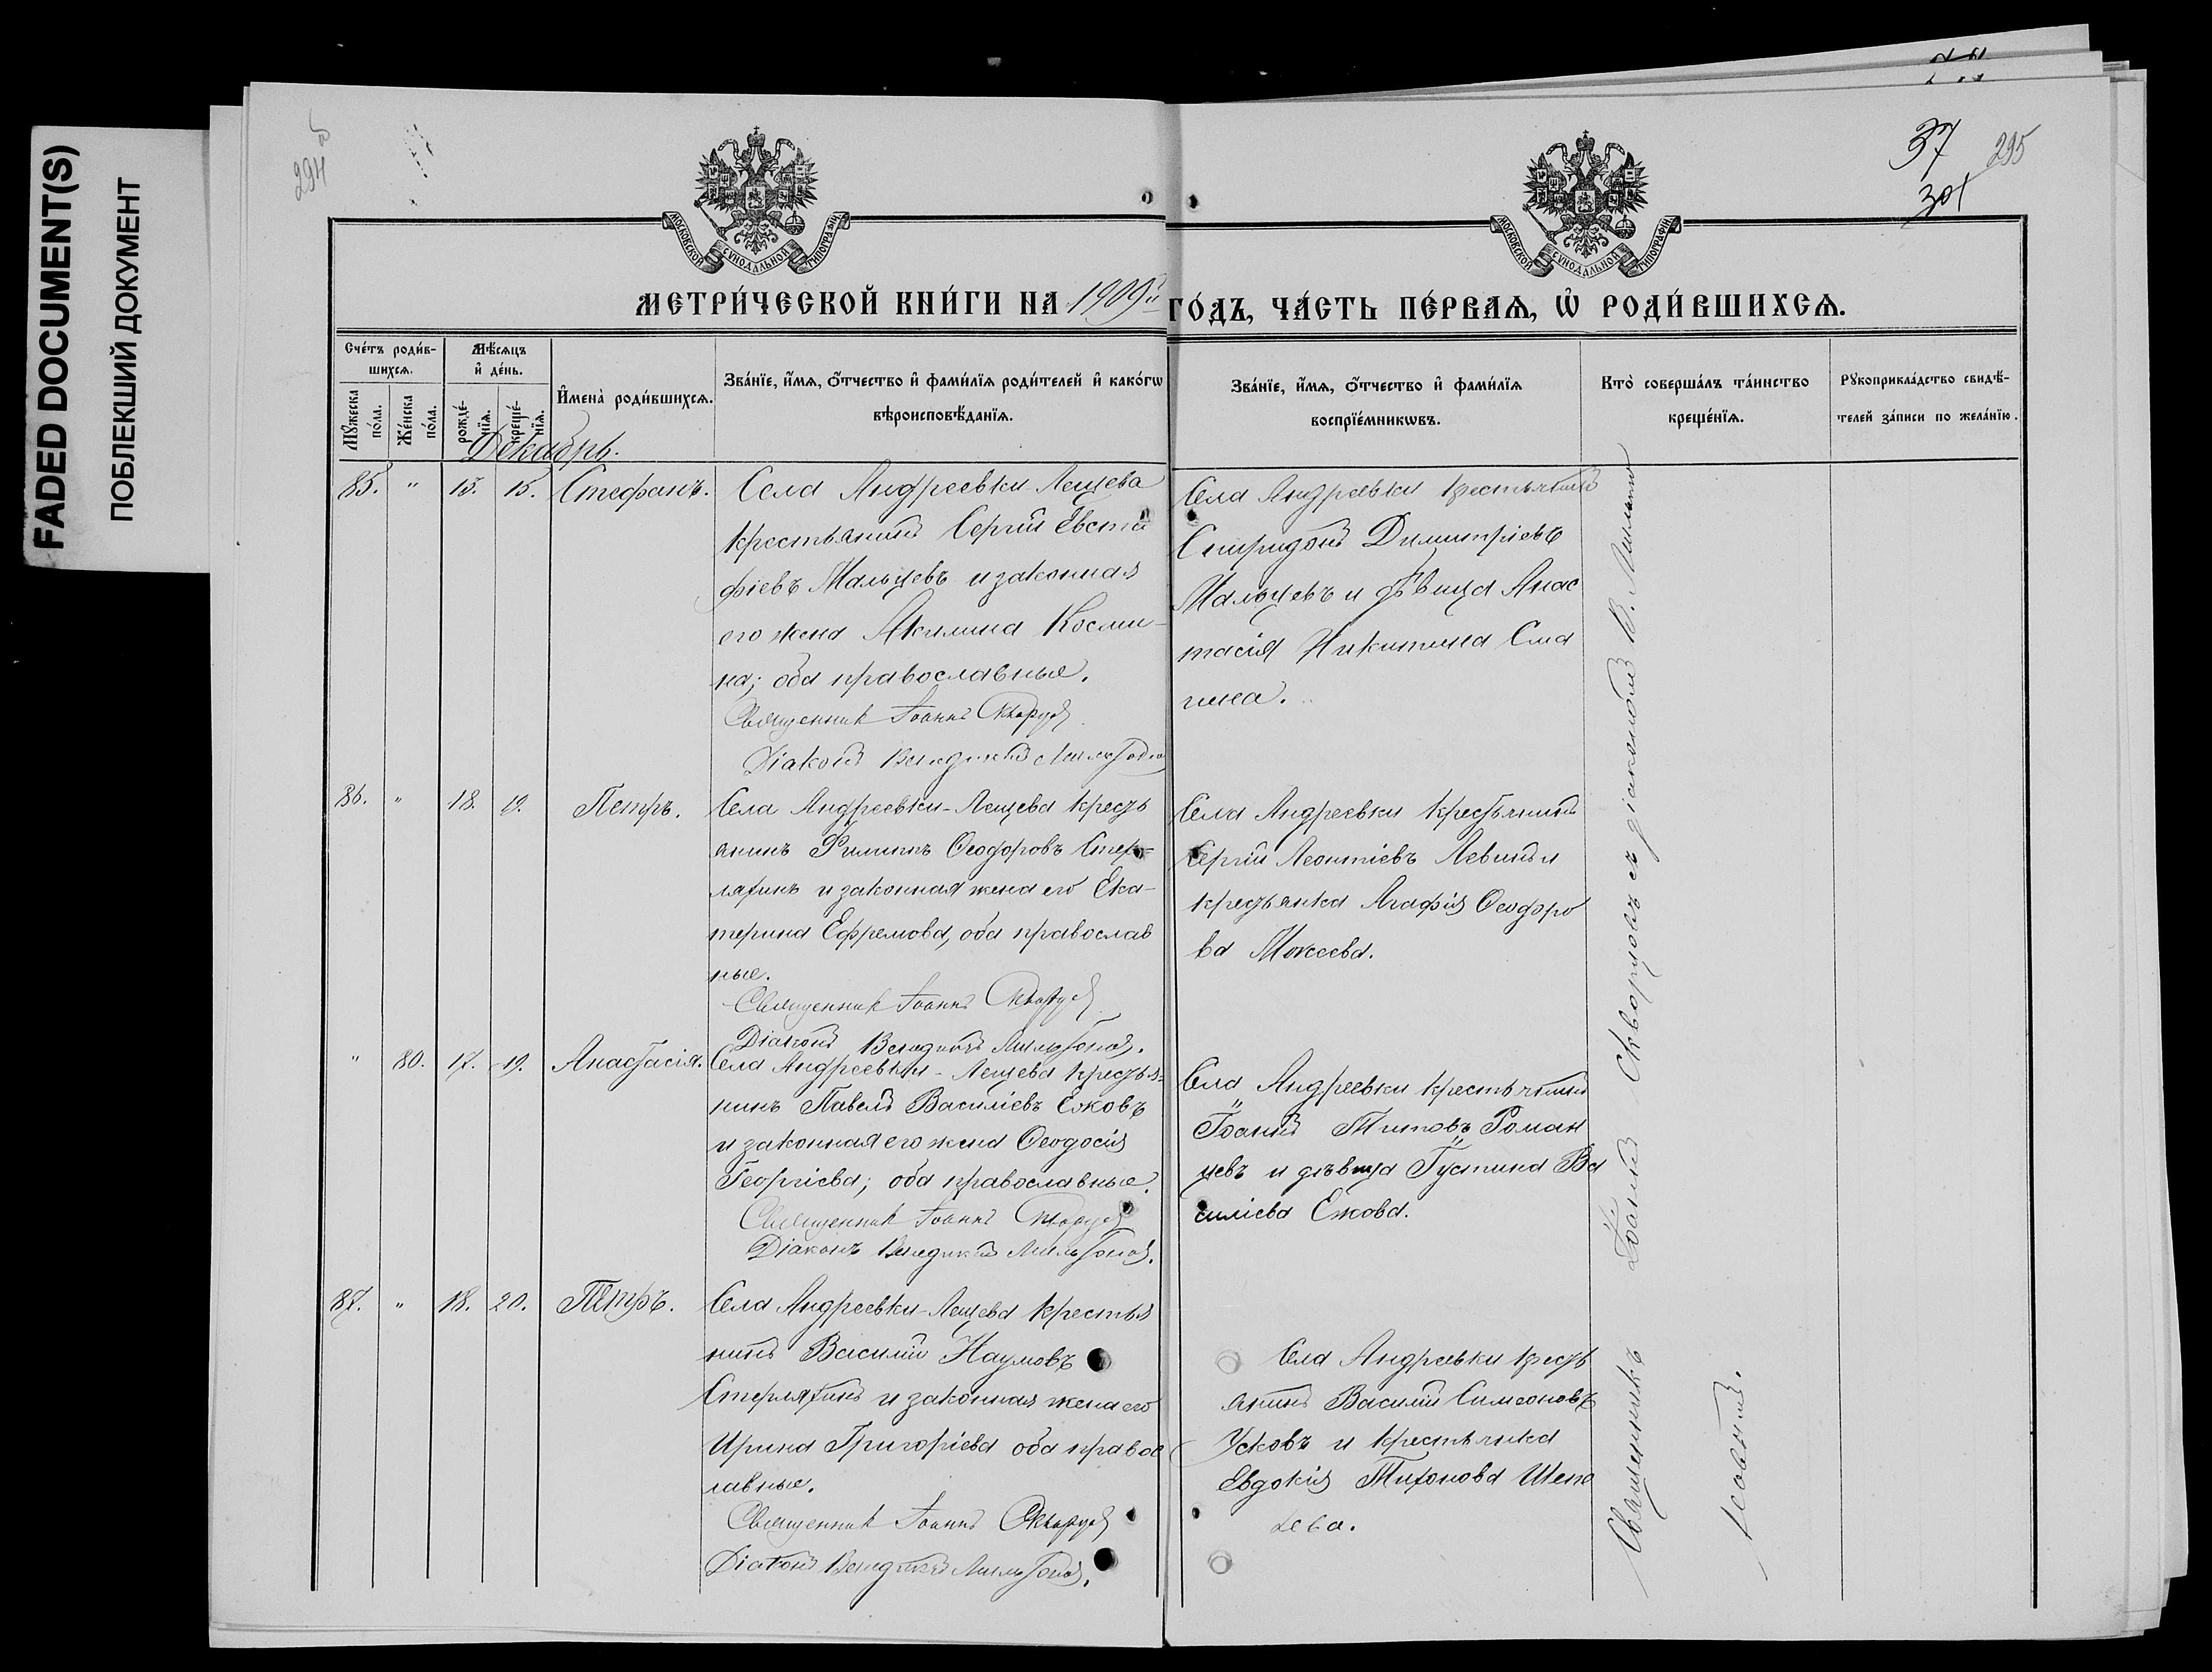 FADED DOCUMENT(S)
ПОБЛЕКШИЙ ДОКУМЕНТ
294 об
37 295
301
МОСКОВСКОЙ СѴНОДАЛЬНОЙ ТИПОГРАФІИ
МОСКОВСКОЙ СѴНОДАЛЬНОЙ ТИПОГРАФІИ
МЕТРИ́ЧЕСКОЙ КНИ́ГИ НА 1909й ГО́ДЪ, ЧА́СТЬ ПЕ́РВАѦ, Ѡ҆ РОДИ́ВШИХСѦ.
Сче́тъ роди́в-
шихсѧ.
Мѣ́сѧцъ
и҆ де́нь.
Мꙋ́жеска
по́ла.
Же́нска
по́ла.
рожде́-
нїѧ.
креще́-
нїѧ.
И҆мена̀ роди́вшихсѧ.
Зва́нїе, и҆́мѧ, ѻ҆́тчество и҆ фами́лїѧ роди́телей и҆ како́гѡ
вѣроисповѣ́данїѧ.
Зва́нїе, и҆́мѧ, ѻ҆́тчество и҆ фами́лїѧ
воспрїе́мникѡвъ.
Кто̀ соверша́лъ та́инство
креще́нїѧ.
Рꙋкоприкла́дство свидѣ́-
телей за́писи по жела́нїю.
Декабрь.
85. " 15. 15. Стефанъ.
Села Андреевки-Лещева
крестьянинъ Сергій Евста
фіевъ Мальцевъ и законная
его жена Акилина Косми-
на; оба православные.
Священникъ Іоаннъ Скворцовъ
Діаконъ Венедиктъ Мильтоновъ
Села Андреевки крестьянинъ
Спиридонъ Димитріевъ
Мальцевъ и дѣвица Анас
тасія Никитина Сма
гина.
86. " 18. 19. Петръ.
Села Андреевки-Лещева кресть
янинъ Филиппъ Ѳеодоровъ Стер-
ляхинъ и законная жена его Ека-
терина Ефремова, оба православ
ные.
Священникъ Іоаннъ Скворцовъ
Діаконъ Венедиктъ Мильтоновъ.
Села Андреевки крестьянинъ
Сергій Леонтіевъ Левинъ и
крестьянка Агафія Ѳеодоро
ва Мокеева.
" 80. 17. 19. Анастасія.
Села Андреевки-Лещева крестья-
нинъ Павелъ Василіевъ Ежовъ
и законная его жена Ѳеодосія
Георгіева; оба православные.
Священникъ Іоаннъ Скворцовъ
Діаконъ Венедиктъ Мильтоновъ.
Села Андреевки крестьянинъ
Іоаннъ Титовъ Роман
цевъ и дѣвица Іустина Ва
силіева Ежова.
87. " 18. 20. Петръ.
Села Андреевки-Лещева крестья
нинъ Василій Наумовъ
Стерляхинъ и законная жена его
Ирина Григоріева оба правос
лавные.
Священникъ Іоаннъ Скворцовъ
Діаконъ Венедиктъ Мильтоновъ.
Села Андреевки кресть
янинъ Василій Симеоновъ
Усковъ и крестьянка
Евдокія Тихонова Шепе
лева.
Священникъ Іоаннъ Скворцовъ съ діакономъ В. Мильто
новымъ.